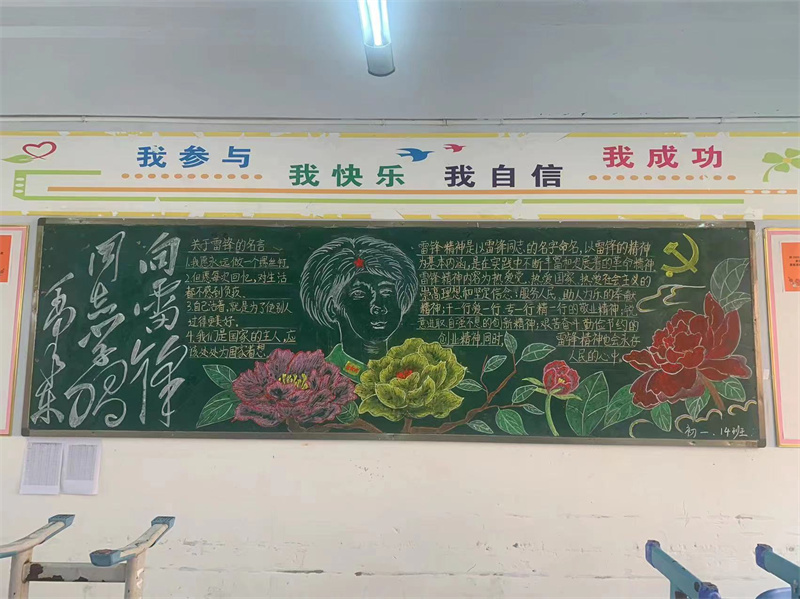 我参与
我快乐
我自信
我成功
向雷锋
同志学习
毛泽东
关于雷锋的名言
1.我愿永远做一个螺丝钉.
2.但愿每次回忆,对生活
都不感到负疚
3.自己活着,就是为了使别人
过得更美好.
4.我们是国家的主人,应
该处处为国家着想
雷锋精神是以雷锋同志的名字命名,以雷锋的精神
为基本内涵,是在实践中不断丰富和发展着的革命精神
雷锋精神内容为热爱党、热爱国家、热爱社会主义的
崇高理想和坚定信念;服务人民、助人为乐的奉献
精神;干一行爱一行、专一行精一行的敬业精神;锐
意进取自强不息的创新精神;艰苦奋斗勤俭节约的
创业精神同时,
雷锋精神也会永存
人民的心中.
初一.14班